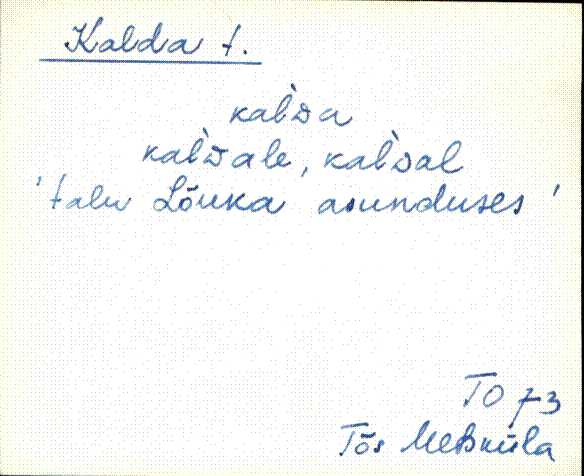 Kalda t.
kal̀da
kal̀dale, kal̀dal
'talu Lõuka asunduses'
TO 73
Tõs Metsküla